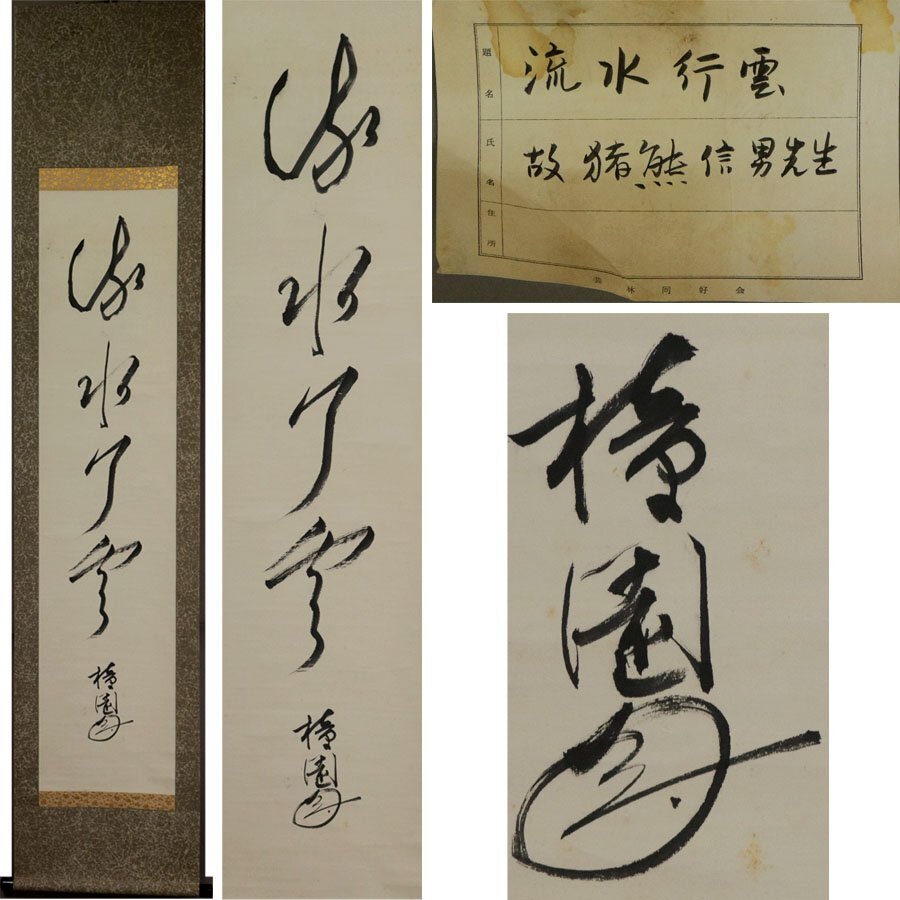 流水行雲
樟園
流水行雲
樟園
題名
流水行雲
氏名
故 猪熊信男先生
住所
芸林同好会
樟園